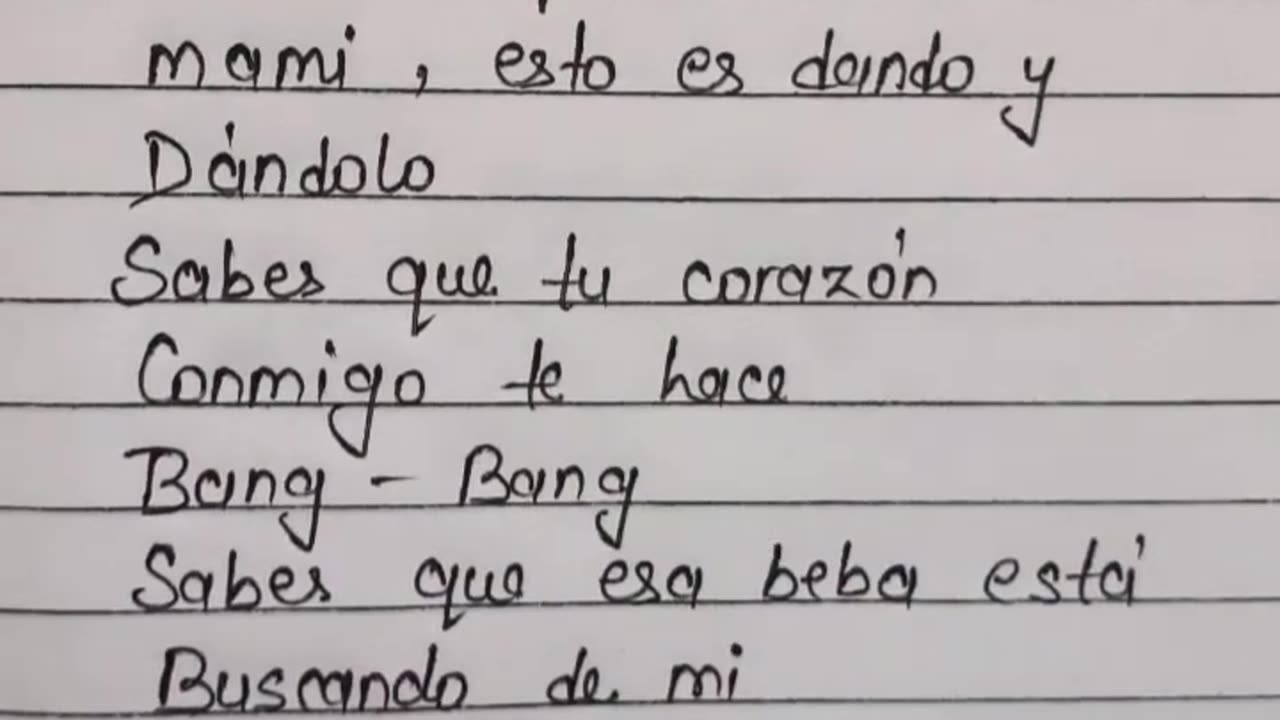 mami, esto es dando y
Dándolo
Sabes que tu corazón
Conmigo te hace
Bang - Bang
Sabes que esa beba está
Buscando de mi